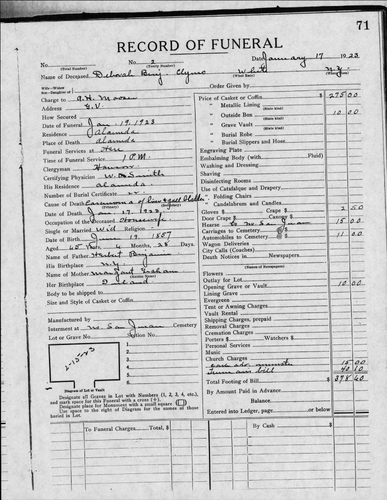 71
RECORD OF FUNERAL
No. 2 Date January 17 1923
(Total Number) (Yearly Number)
Name of Deceased Deborah Clymo White N.Y.
(What Race)
Wife—Widow
Son—Daughter of
Order Given by
Charge to A.H. Moore
Address G.V.
How Secured
Date of Funeral Jan. 19. 1923
Residence Alameda
Place of Death Alameda
Funeral Services at Here
Time of Funeral Service 1 P.M.
Clergyman
Certifying Physician Smith
His Residence Alameda
Number of Burial Certificate
Cause of Death Carcinoma of
Date of Death Jan. 17, 1923
Occupation of Deceased Housewife
Single or Married Wid Religion
Date of Birth 1857
Aged 65 Yrs. Months, 28 Days
Name of Father Herbert
His Birthplace N.Y.
Name of Mother Margaret Graham
Her Birthplace
Body to be shipped to
Size and Style of Casket or Coffin
Manufactured by
Interment at No. San Juan Cemetery
Lot or Grave No. Section No.
1.
2.
3.
4.
5.
6.
Diagram of Lot or Vault
Designate all Graves in Lot with Numbers (1, 2, 3, 4, etc.), and mark space for this Funeral with a cross (+).
Designate place for Monument with a small square (□)
Use space to right of Diagram for the names of those buried in Lot.
To Funeral Charges, Total, $
Price of Casket or Coffin $ 275 00
" Metallic Lining
(State kind)
" Outside Box 10 00
" Grave Vault
(State kind)
" Burial Robe
(State kind)
" Burial Slippers and Hose
Engraving Plate
Embalming Body (with Fluid)
Washing and Dressing
Shaving
Disinfecting Rooms
Use of Catafalque and Drapery
" Folding Chairs
" Candelabrum and Candles
Gloves $ Door Crape $ 2 50
Hearse to No San Juan 15 00
Carriages to Cemetery @ $
Automobiles to Cemetery @ $ 11 00
Wagon Deliveries
City Calls Coaches
Death Notices in Newspapers
(Names of Newspapers)
Flowers
Outlay for Lot
Opening Grave or Vault 10 00
Lining Grave
Evergreen
Tent or Awning Charges
Vault Rental
Shipping Charges, prepaid
Removal Charges
Cremation Charges
Porters $ Watchers $
Personal Services
Music
Church Charges
15 00
bill
Total Footing of Bill $ 378 60
By Amount Paid in Advance
Balance
Entered into Ledger, page or below
By Cash $